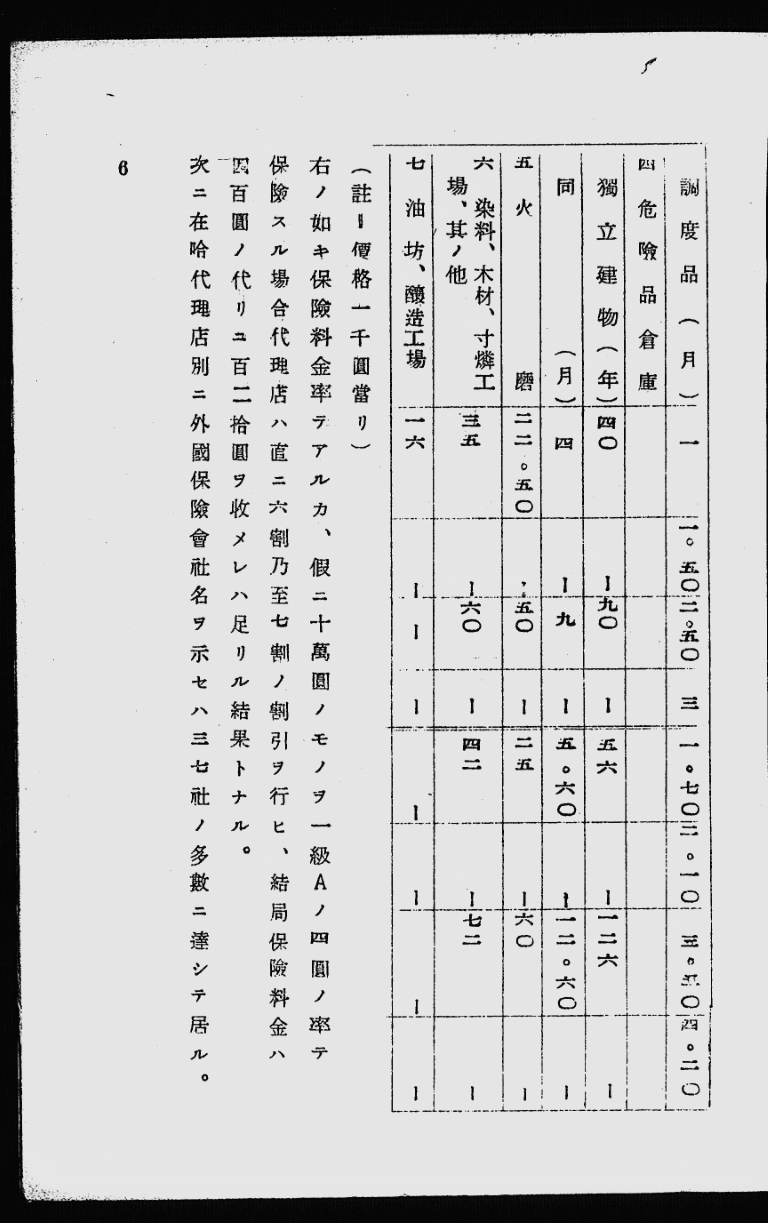 調度品(月) 一 一。五〇 二。五〇 三 一。七〇 二。一〇 三。五〇 四。二〇
四 危險品倉庫
獨立建物(年) 四〇 ー 九〇 ー 五六 ー 一二六 ー
同 (月) 四 ー 九 ー 五。六〇 ー 一二。六〇 ー
五 火 磨 二二。五〇 ー 五〇 ー 二五 ー 六〇 ー
六 染料、木材、寸燐工
場、其ノ他 三五 ー 六〇 ー 四二 ー 七二 ー
七 油坊、釀造工場 一六 ー ー ー ー ー ー ー
(註ー價格一千圓當リ)
右ノ如キ保險料金率テアルカ、假ニ十萬圓ノモノヲ一級Aノ四圓ノ率テ
保險スル場合代理店ハ直ニ六割乃至七割ノ割引ヲ行ヒ、結局保險料金ハ
四百圓ノ代リニ百二拾圓ヲ收メレハ足リル結果トナル。
次ニ在哈代理店別ニ外國保險會社名ヲ示セハ三七社ノ多數ニ達シテ居ル。
6